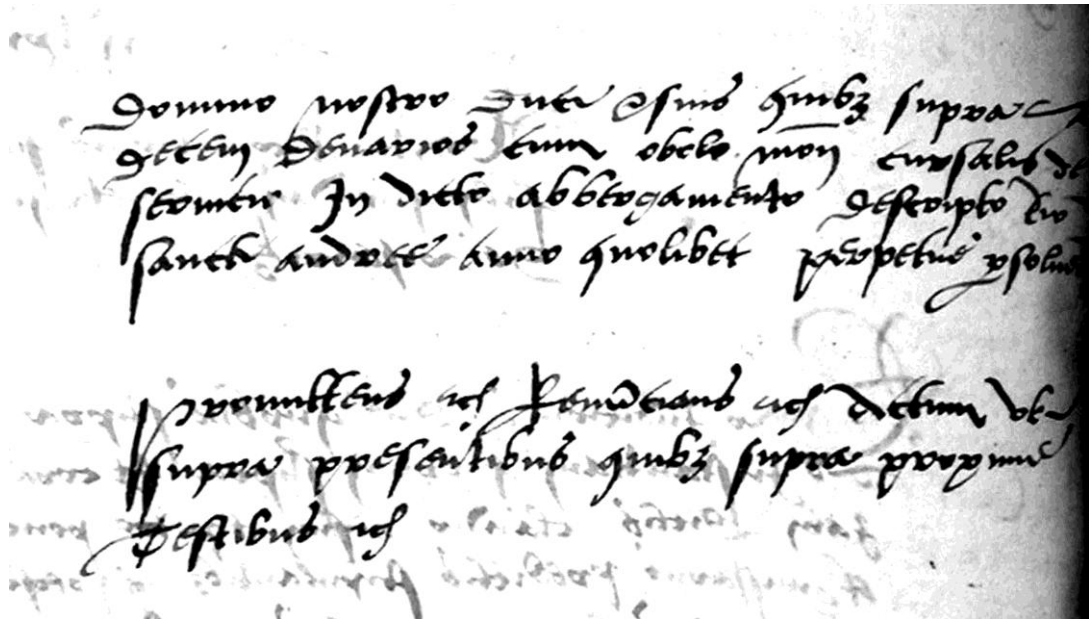 domino nostro duci & suis quibz supra
decem denarios cum obolo mon cursalis de
servicio In dicto abbergamento descripto
sancti andree anno quolibet perpetue psolue
Promittens ich Renūcians ich Actum ubi
supra presentibus quibz supra proxime
Testibus ich